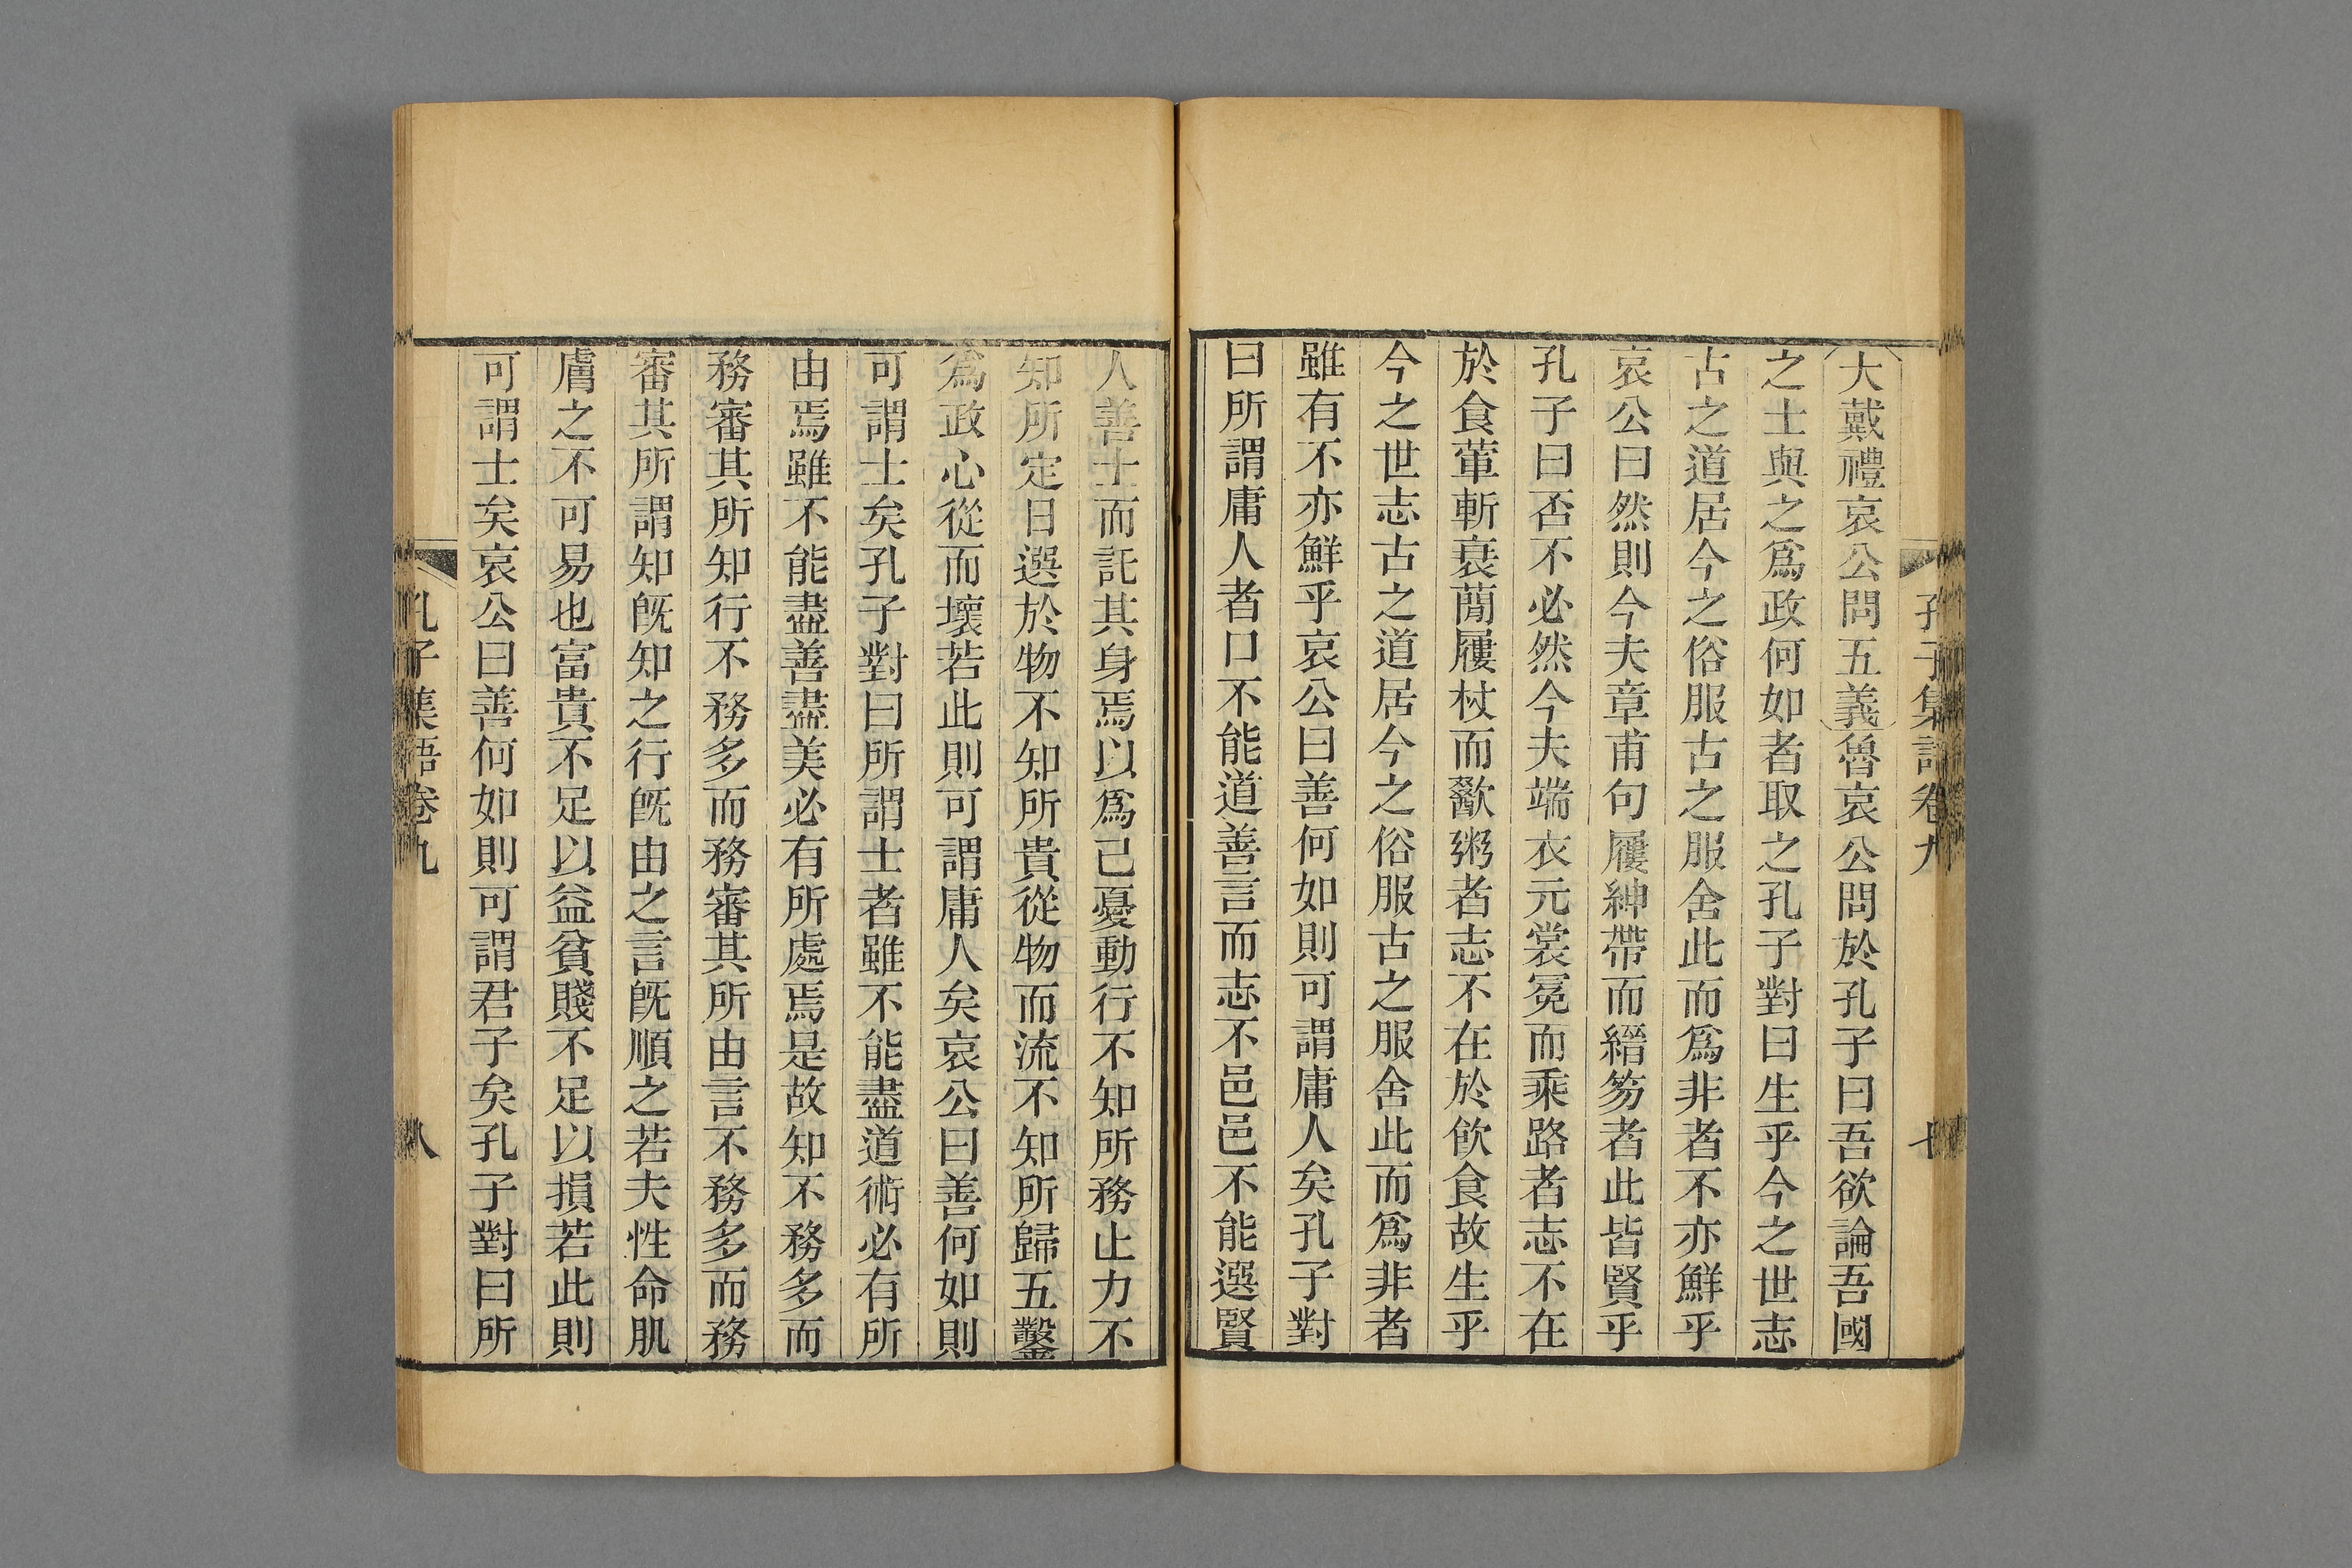 孔子集語卷九
大戴禮哀公問五義魯哀公問於孔子曰吾欲論吾國
之士與之爲政何如者取之孔子對曰生乎今之世志
古之道居今之俗服古之服舍此而爲非者不亦鮮乎
哀公曰然則今夫章甫句屨紳帶而縉笏者此皆賢乎
孔子曰否不必然今夫端衣元裳冕而乘路者志不在
於食葷斬衰蕳屨杖而歠粥者志不在於飲食故生乎
今之世志古之道居今之俗服古之服舍此而爲非者
雖有不亦鮮乎哀公曰善何如則可謂庸人矣孔子對
曰所謂庸人者口不能道善言而志不邑邑不能選賢
人善士而託其身焉以爲己憂動行不知所務止力不
知所定日選於物不知所貴從物而流不知所歸五鑿
爲政心從而壞若此則可謂庸人矣哀公曰善何如則
可謂士矣孔子對曰所謂士者雖不能盡道術必有所
由焉雖不能盡善盡美必有所處焉是故知不務多而
務審其所知行不務多而務審其所由言不務多而務
審其所謂知旣知之行旣由之言旣順之若夫性命肌
膚之不可易也富貴不足以益貧賤不足以損若此則
可謂士矣哀公曰善何如則可謂君子矣孔子對曰所
孔子集語卷九
八